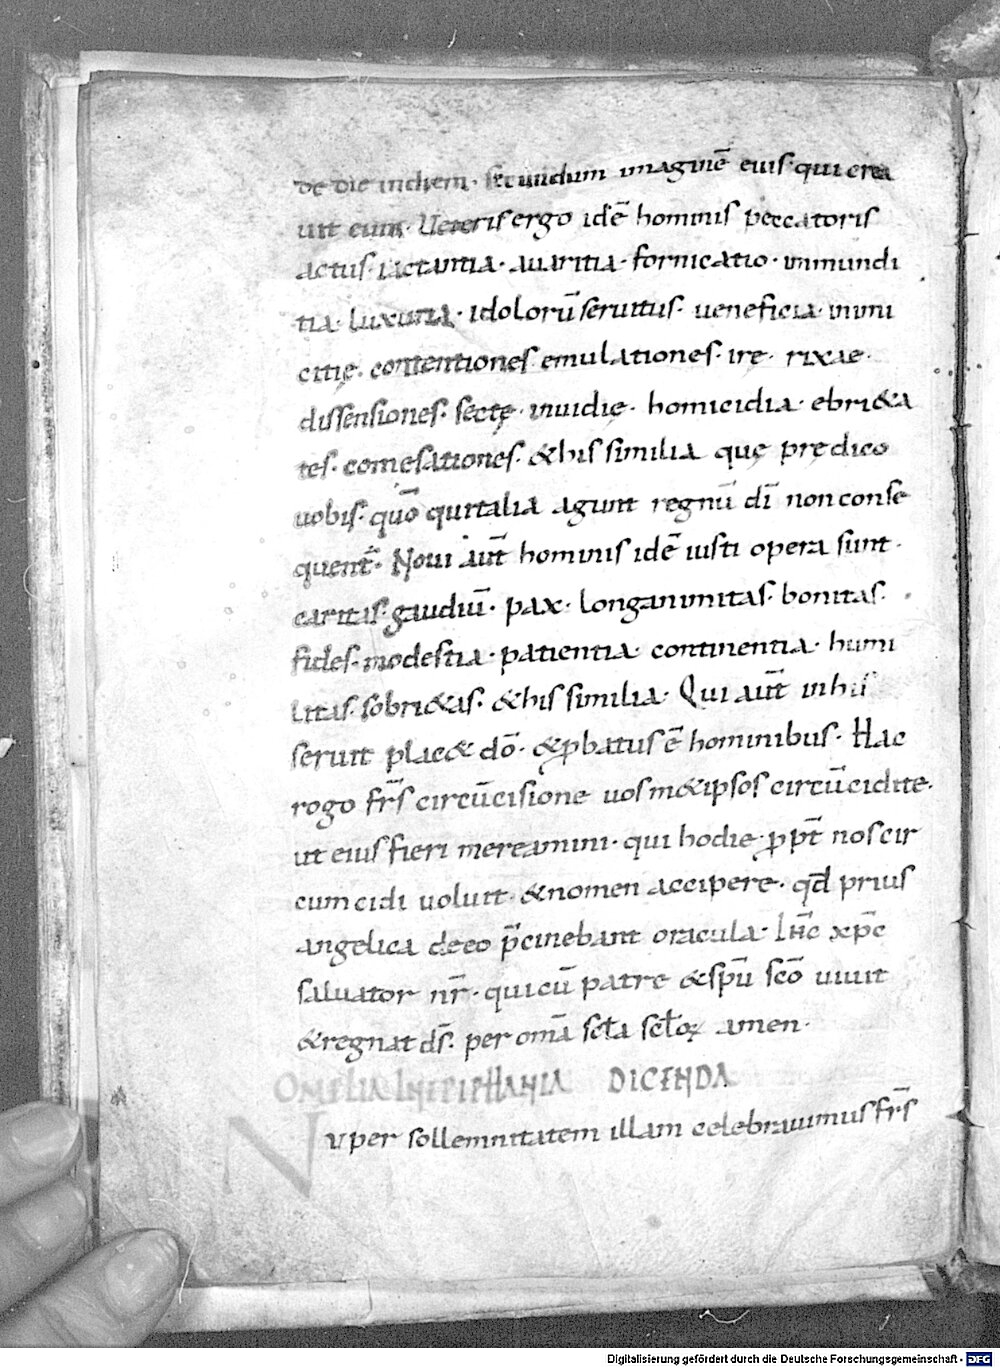 de die in diem· secundum imaginē eius· qui crea
uit eum· Ueteris ergo idē hominis peccatoris
actus· iactantia· auaritia· fornicatio· inmundi
tia· luxuria· idolorū seruitus· ueneficia· inimi
citię· contentiones emulationes· ire· rixae·
dissensiones· sectę· inuidię· homicidia· ebri&a
tes· comesationes· & his similia que prędico
uobis· quō qui talia agunt regnū dī non conse
quent̄· Noui aut̄ hominis idē iusti opera sunt·
caritas· gaudiū· pax· longanimitas· bonitas·
fides· modestia· patientia· continentia· humi
litas· sobri&as· & his similia· Qui aut̄ in his
seruit plac& dō· & ꝓbatus ē hominibus· Hac
rogo fr̄s circūcisione uosm&ipsos circūcidite·
ut eius fieri mereamini· qui hodie ꝓpt̄ nos cir
cumcidi uoluit· & nomen accipere· qđ prius
angelica de eo p̄cinebant oracula· Ihc̄ xp̄c
saluator nr̄· qui cū patre & sp̄u sc̄o uiuit
& regnat ds̄· per om̄a scl̄a scl̄oꝝ amen·
OMELIA IN EPIPHANIA DICENDA
Nuper sollemnitatem illam celebrauimus fr̄s
Digitalisierung gefördert durch die Deutsche Forschungsgemeinschaft - DFG